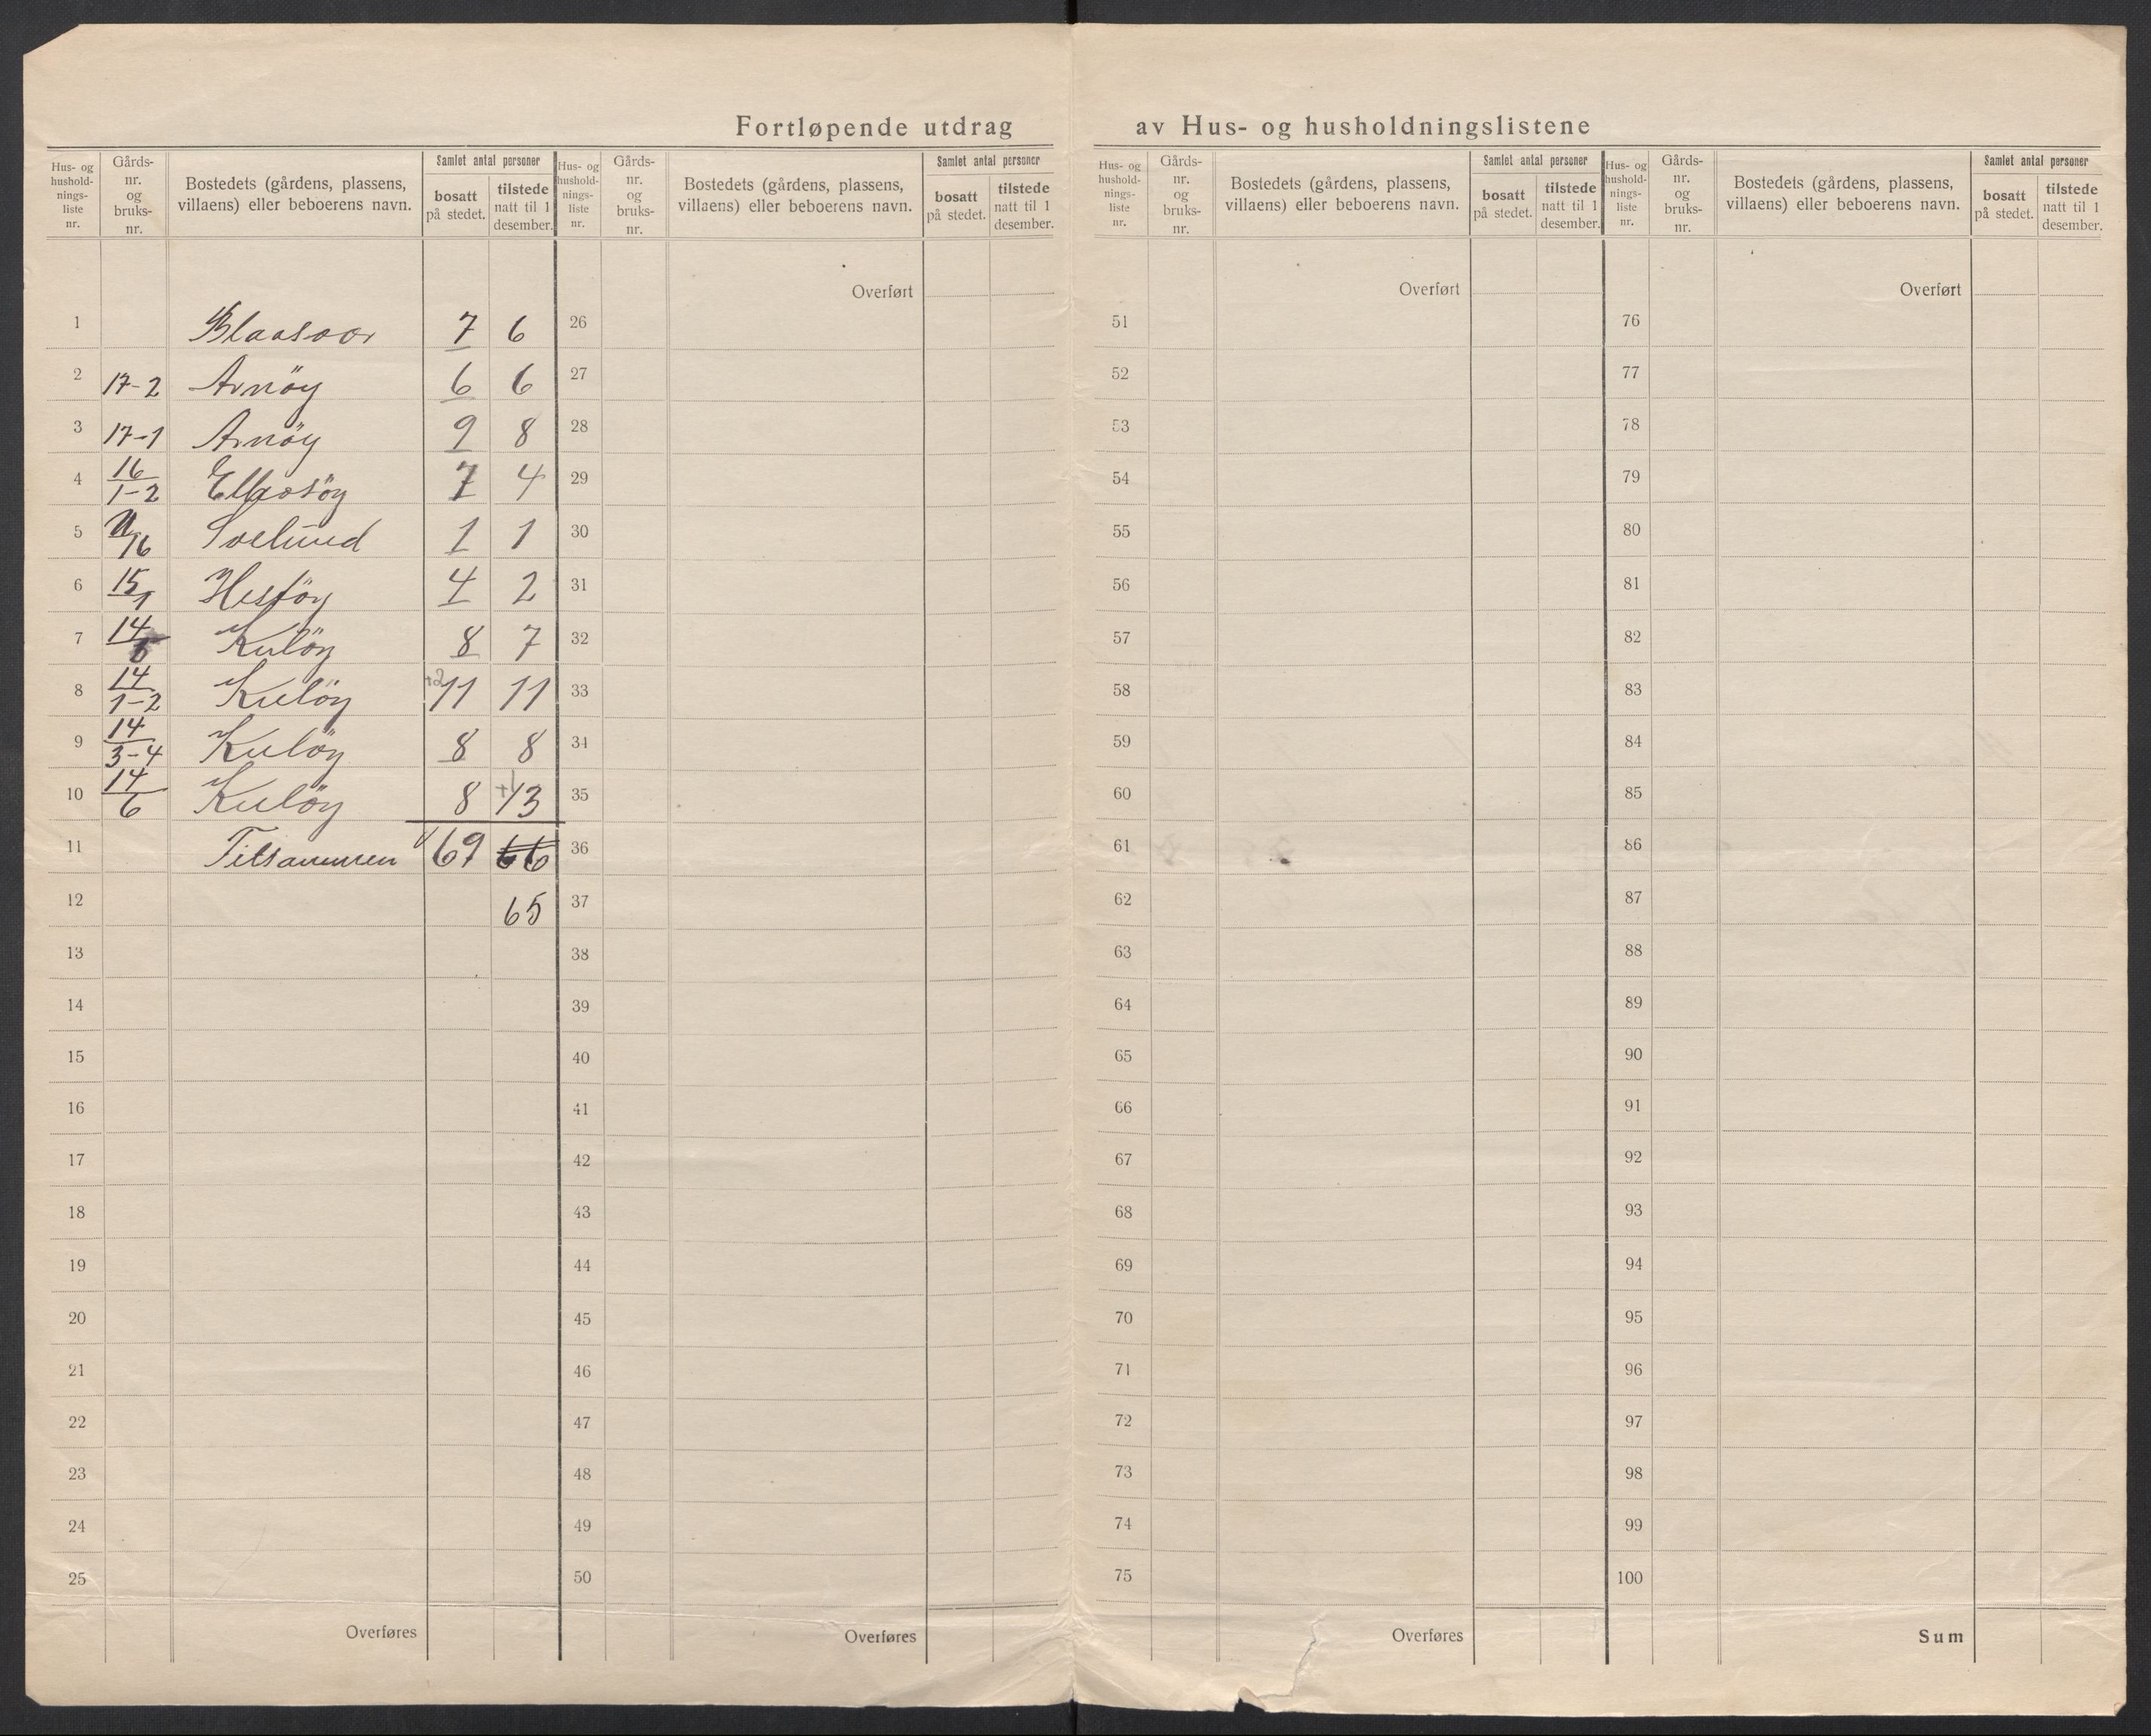 Fortløpende utdrag av Hus- og husholdningslistene
Hus- og hushold-nings-liste nr.
Gårds-nr. og bruks-nr.
Bostedets (gårdens, plassens, villaens) eller beboerens navn.
Samlet antal personer
bosatt på stedet.
tilstede natt til 1 desember.
Hus- og hushold-nings-liste nr.
Gårds-nr. og bruks-nr.
Bostedets (gårdens, plassens, villaens) eller beboerens navn.
Samlet antal personer
bosatt på stedet.
tilstede natt til 1 desember.
Hus- og hushold-nings-liste nr.
Gårds-nr. og bruks-nr.
Bostedets (gårdens, plassens, villaens) eller beboerens navn.
Samlet antal personer
bosatt på stedet.
tilstede natt til 1 desember.
Hus- og hushold-nings-liste nr.
Gårds-nr. og bruks-nr.
Bostedets (gårdens, plassens, villaens) eller beboerens navn.
Samlet antal personer
bosatt på stedet.
tilstede natt til 1 desember.
Overført Overført Overført
1 7 6 26 51 76
2 17-2 Arnöy 6 6 27 52 77
3 17-1 Arnöy 9 8 28 53 78
4 16/1-2 7 4 29 54 79
5 1 1 30 55 80
6 15/1 Hestöy 4 2 31 56 81
7 14 Kulöy 8 7 32 57 82
8 14/1-2 Kulöy +2 11 11 33 58 83
9 14/3-4 Kulöy 8 8 34 59 84
10 14/6 Kulöy 8 13 35 60 85
11 Tilsammen 69 66 36 61 86
12 65 37 62 87
13 38 63 88
14 39 64 89
15 40 65 90
16 41 66 91
17 42 67 92
18 43 68 93
19 44 69 94
20 45 70 95
21 46 71 96
22 47 72 97
23 48 73 98
24 49 74 99
25 50 75 100
Overføres Overføres Overføres Sum